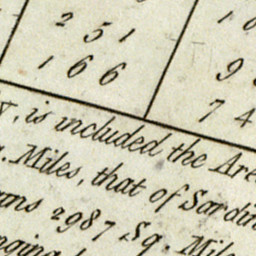 2 5 1
1 6 6
9
7 4
is included the Are
Miles, that of Sardin
2987 Sq. Mil